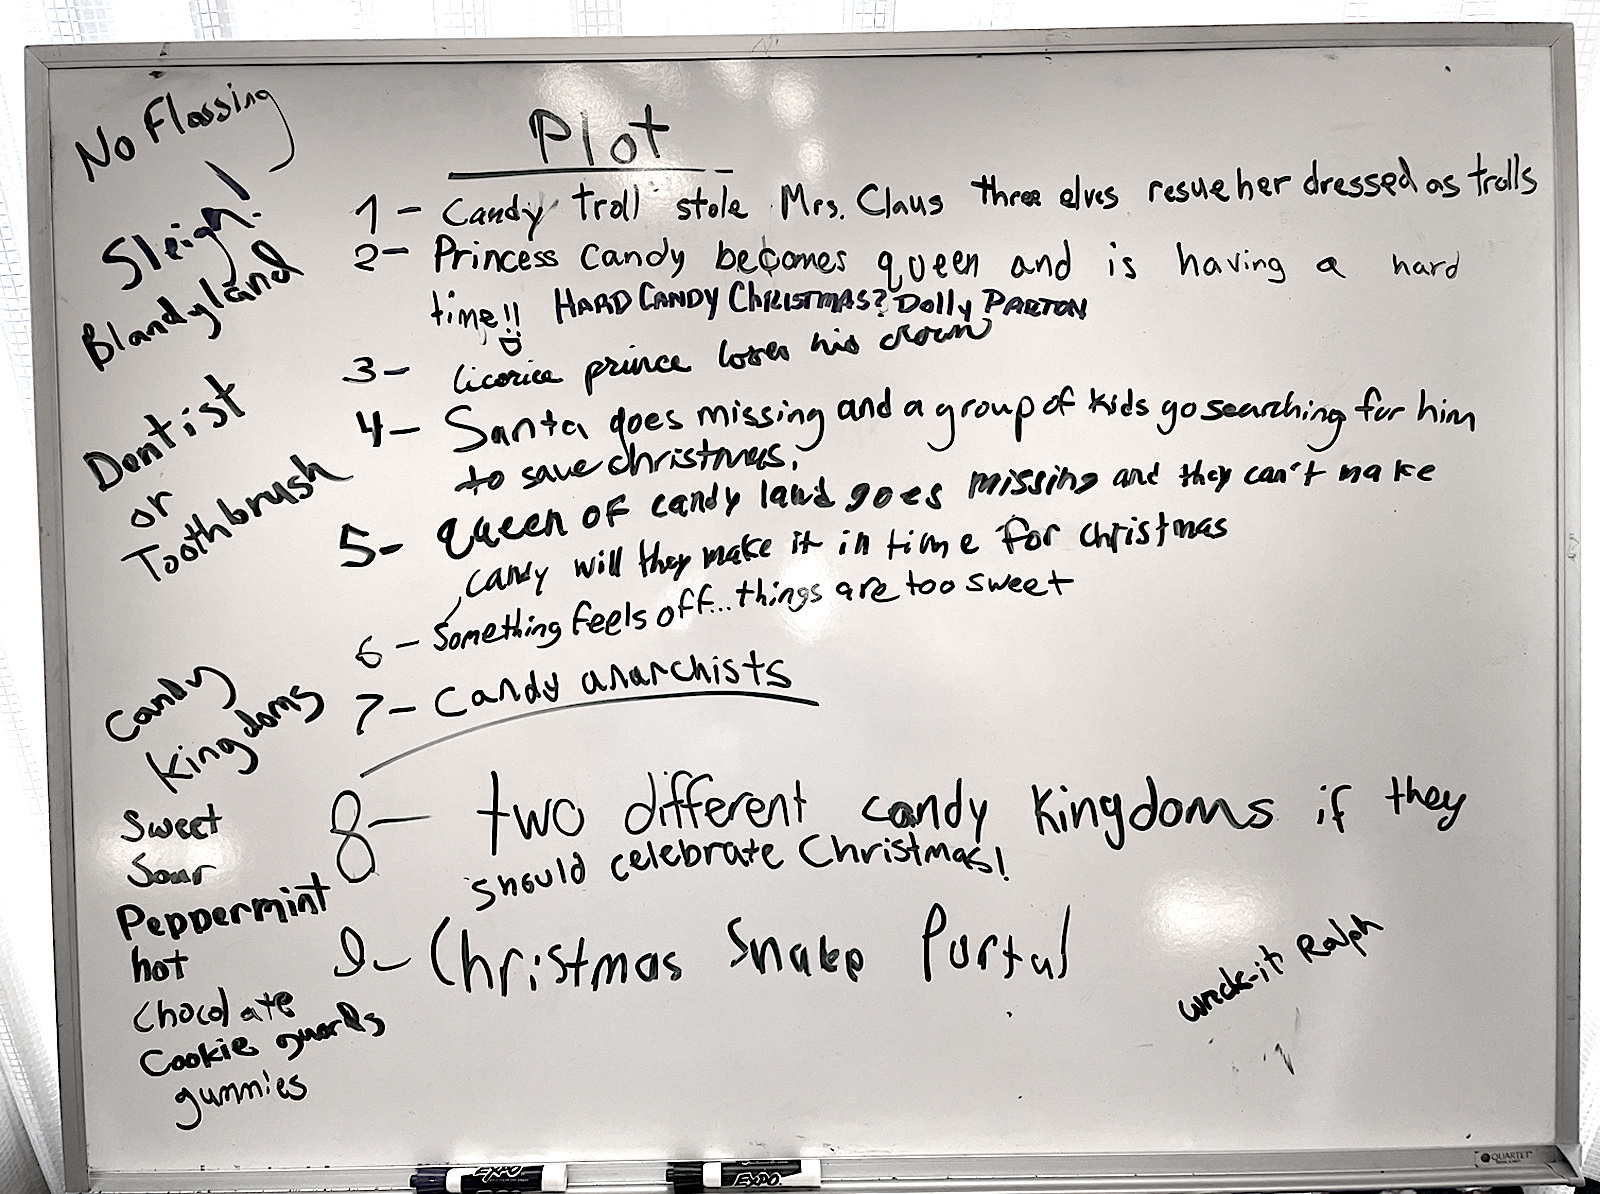 No Flossing
Sleigh!
Blandyland
Dentist
or
Toothbrush
Candy
Kingdoms
Sweet
Sour
Peppermint
hot
Chocolate
Cookie guards
gummies
Plot
1- Candy troll stole Mrs. Claus three elves resue her dressed as trolls
2- Princess Candy becomes queen and is having a hard
time!! HARD CANDY CHRISTMAS? Dolly PARTON
3- licorice prince loses his crown
4- Santa goes missing and a group of kids go searching for him
to save christmas.
5- queen of candy land goes missing and they can't make
candy will they make it in time for christmas
6- Something feels off... things are too sweet
7- Candy anarchists
8- two different candy kingdoms if they
should celebrate Christmas!
9- Christmas Snake Portal
wreck-it Ralph
EXPO
EXPO
QUARTET